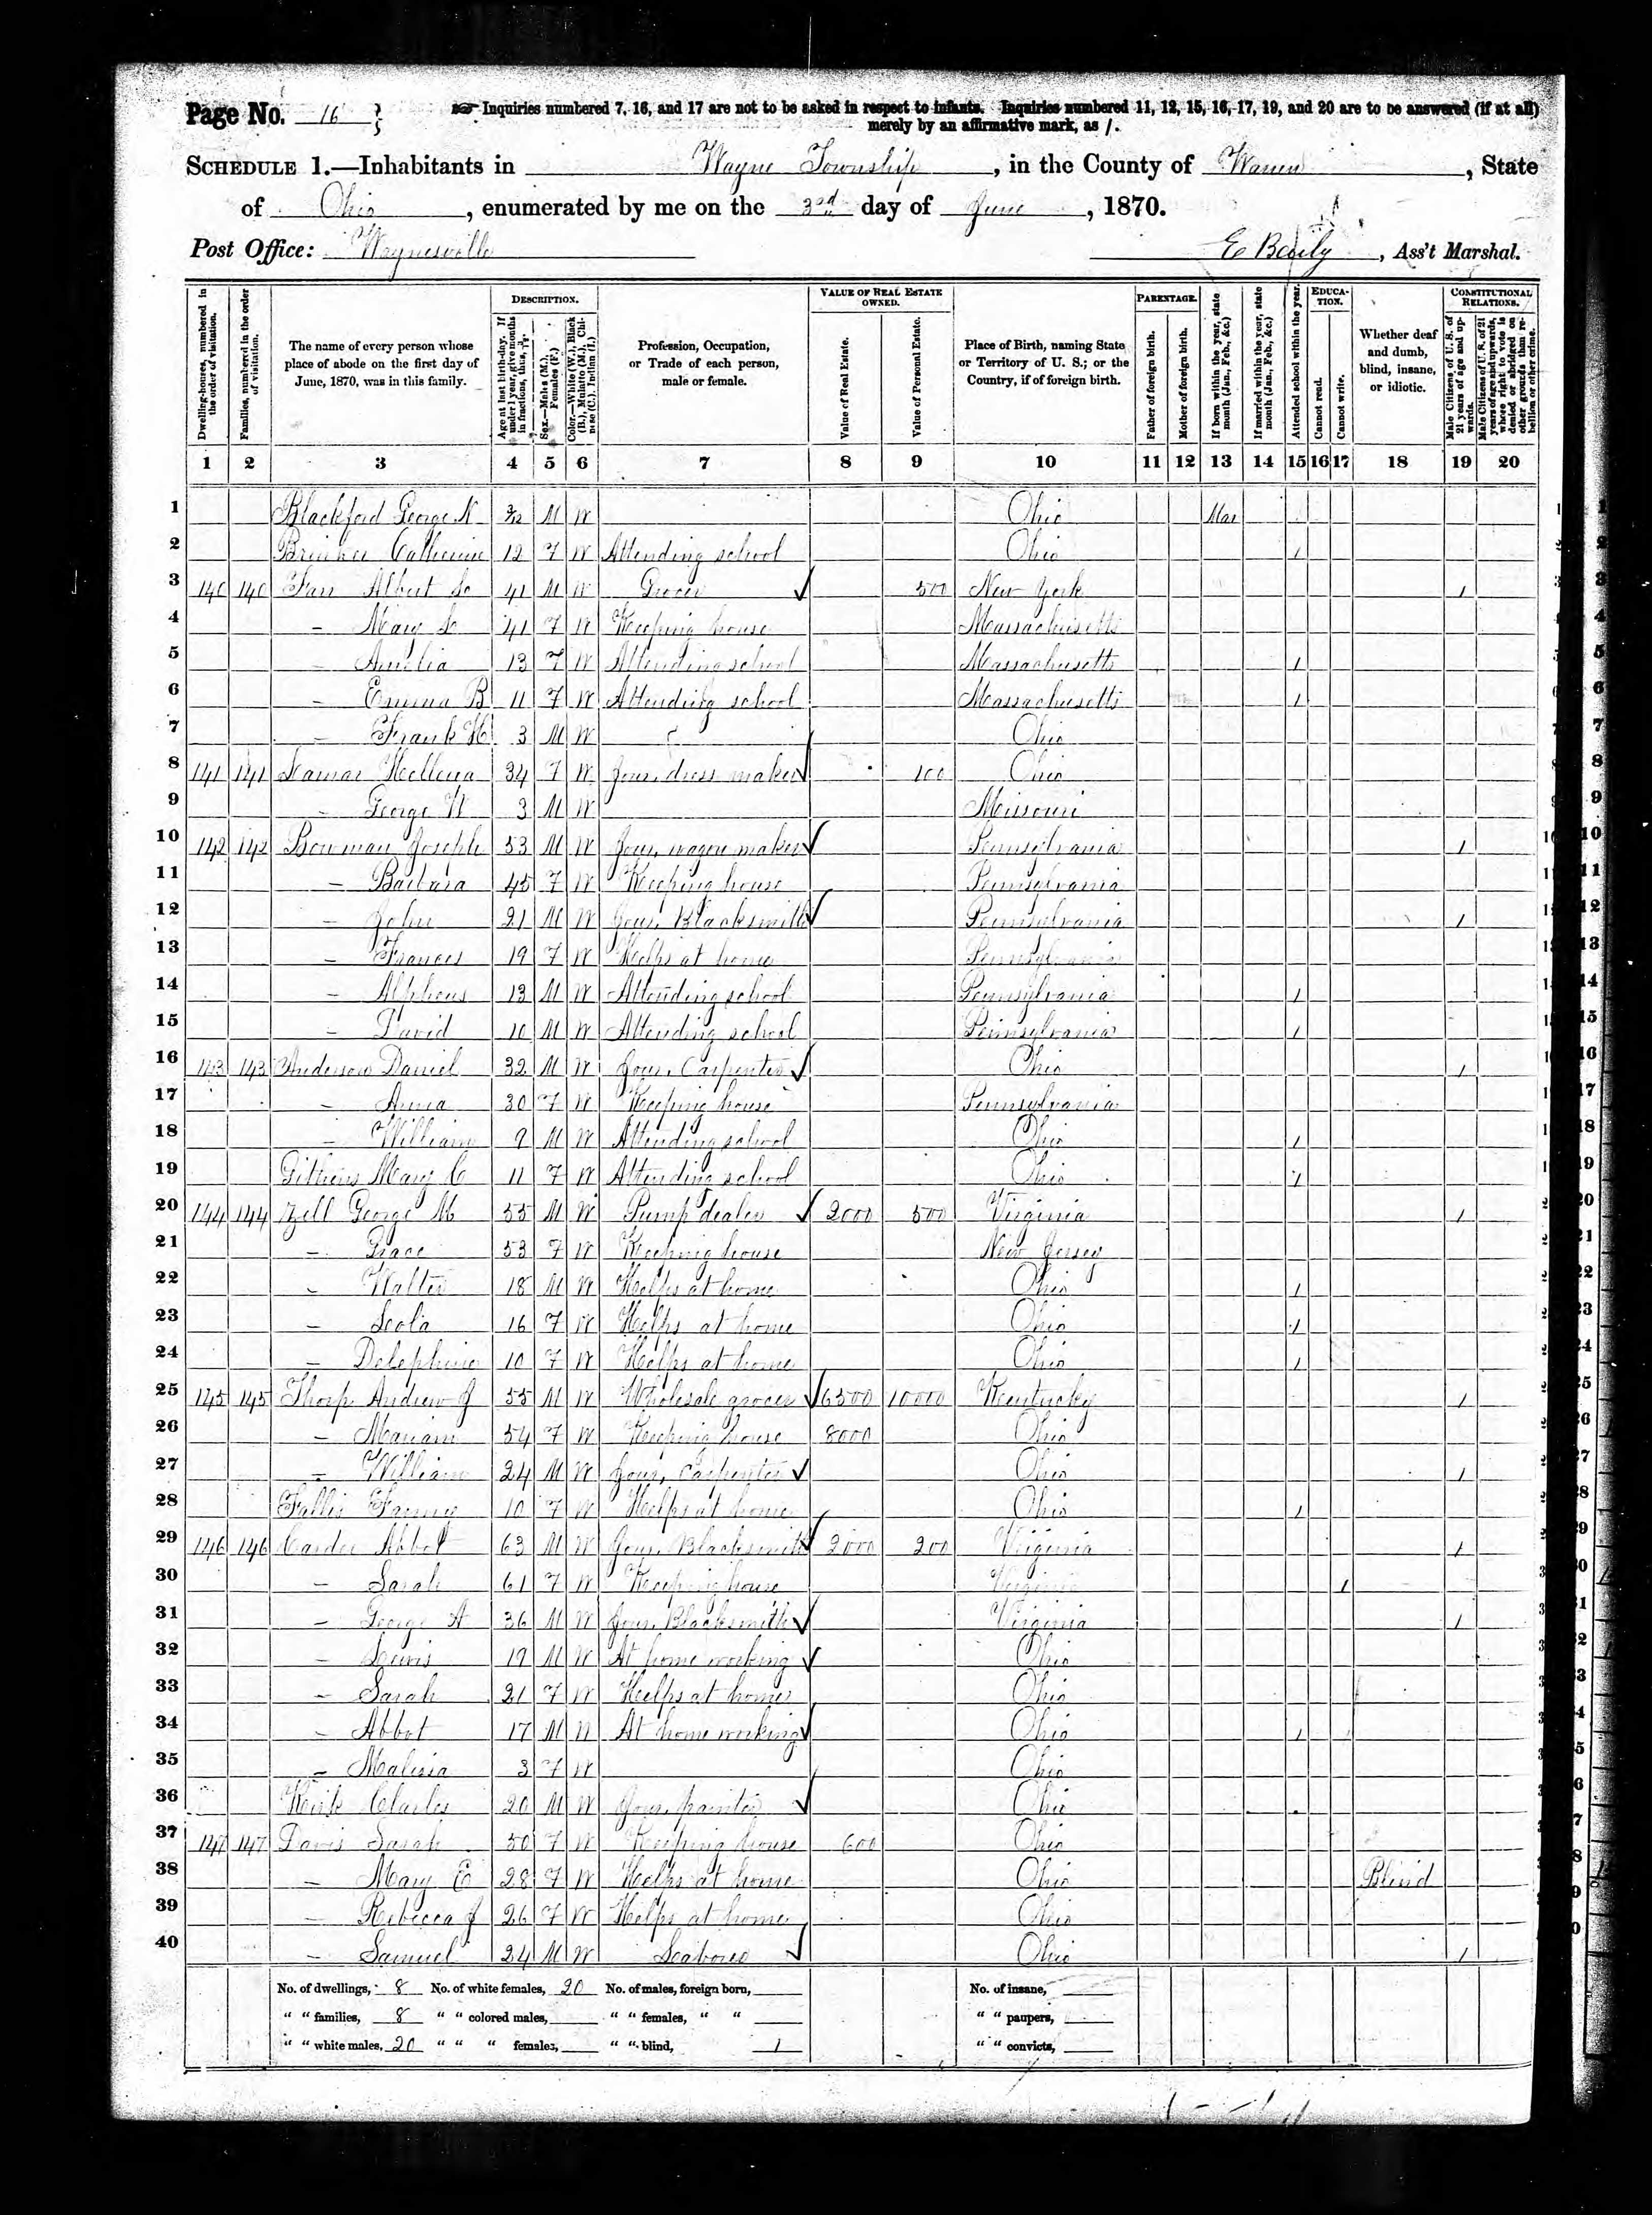 Page No. 16
☞ Inquiries numbered 7, 16, and 17 are not to be asked in respect to infants. Inquiries numbered 11, 12, 15, 16, 17, 19, and 20 are to be answered (if at all)
merely by an affirmative mark, as /.
SCHEDULE 1.—Inhabitants in Wayne Township, in the County of Warren, State
of Ohio, enumerated by me on the 3rd day of June, 1870.
Post Office: Waynesville
E, Ass't Marshal.
Dwelling-houses, numbered in the order of visitation.
Families, numbered in the order of visitation.
The name of every person whose place of abode on the first day of June, 1870, was in this family.
DESCRIPTION.
Age at last birth-day. If under 1 year, give months in fractions, thus, 3/12.
Sex.—Males (M.), Females (F.)
Color.—White (W.), Black (B.), Mulatto (M.), Chinese (C.), Indian (I.)
Profession, Occupation, or Trade of each person, male or female.
VALUE OF REAL ESTATE OWNED.
Value of Real Estate.
Value of Personal Estate.
Place of Birth, naming State or Territory of U. S.; or the Country, if of foreign birth.
PARENTAGE.
Father of foreign birth.
Mother of foreign birth.
If born within the year, state month (Jan., Feb., &c.)
If married within the year, state month (Jan., Feb., &c.)
Attended school within the year.
EDUCATION.
Cannot read.
Cannot write.
Whether deaf and dumb, blind, insane, or idiotic.
CONSTITUTIONAL RELATIONS.
Male Citizens of U. S. of 21 years of age and upwards.
Male Citizens of U. S. of 21 years of age and upwards, whose right to vote is denied or abridged on other grounds than rebellion or other crime.
1 2 3 4 5 6 7 8 9 10 11 12 13 14 15 16 17 18 19 20
1 Blackford George N 3/12 M W Ohio Mar
2 Catherine 12 F W Attending school Ohio /
3 140 140 Farr Albert 41 M W Grocer ✓ 500 New York /
4 – Mary 41 F W Keeping house Massachusetts
5 – Amelia 13 F W Attending school Massachusetts /
6 – Emma B 11 F W Attending school Massachusetts /
7 – Frank H 3 M W Ohio
8 141 141 Hellena 34 F W Jour. dress maker ✓ 100 Ohio
9 – George W 3 M W Missouri
10 142 142 Bowman Joseph 53 M W Jour. wagon maker ✓ Pennsylvania /
11 – Barbara 45 F W Keeping house Pennsylvania
12 – John 21 M W Jour. Blacksmith ✓ Pennsylvania /
13 – Frances 19 F W Helps at home Pennsylvania
14 – Alpheus 13 M W Attending school Pennsylvania /
15 – David 10 M W Attending school Pennsylvania /
16 143 143 Anderson Daniel 32 M W Jour. Carpenter ✓ Ohio /
17 – Anna 30 F W Keeping house Pennsylvania
18 – William 9 M W Attending school Ohio /
19 Mary C 11 F W Attending school Ohio /
20 144 144 Zell George M 55 M W Pump dealer ✓ 2000 500 Virginia /
21 – Grace 53 F W Keeping house New Jersey
22 – Walter 18 M W Helps at home Ohio /
23 – Leola 16 F W Helps at home Ohio /
24 – Delephine 10 F W Helps at home Ohio /
25 145 145 Thorp Andrew J 55 M W Wholesale grocer ✓ 6500 10000 Kentucky /
26 – Mariam 54 F W Keeping house 8000 Ohio
27 – William 24 M W Jour. Carpenter ✓ Ohio /
28 Fallis Fanny 10 F W Helps at home Ohio /
29 146 146 Carder Abbot 63 M W Jour. Blacksmith ✓ 2000 200 Virginia /
30 – Sarah 61 F W Keeping house Virginia /
31 – George A 36 M W Jour. Blacksmith ✓ Virginia /
32 – Lewis 19 M W At home working ✓ Ohio
33 – Sarah 21 F W Helps at home Ohio
34 – Abbot 17 M W At home working ✓ Ohio /
35 – 3 F W Ohio
36 Kirk Charles 20 M W Jour. painter ✓ Ohio
37 147 147 Davis Sarah 50 F W Keeping house 600 Ohio
38 – Mary E 28 F W Helps at home Ohio Blind
39 – Rebecca J 26 F W Helps at home Ohio
40 – Samuel 24 M W Laborer ✓ Ohio /
No. of dwellings, 8 No. of white females, 20 No. of males, foreign born, No. of insane,
" " families, 8 " " colored males, " " females, " " " " paupers,
" " white males, 20 " " " females, " " blind, 1 " " convicts,